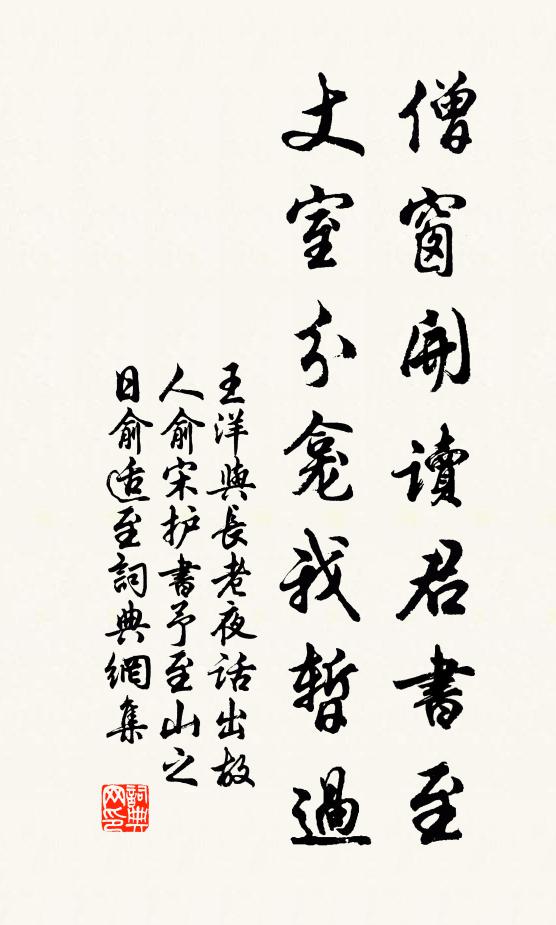 僧窗開讀君書至
丈室分龕我暫過
王洋與長老夜話出故
人俞宋护書予至山之
日俞适至詞典網集
詞典网印